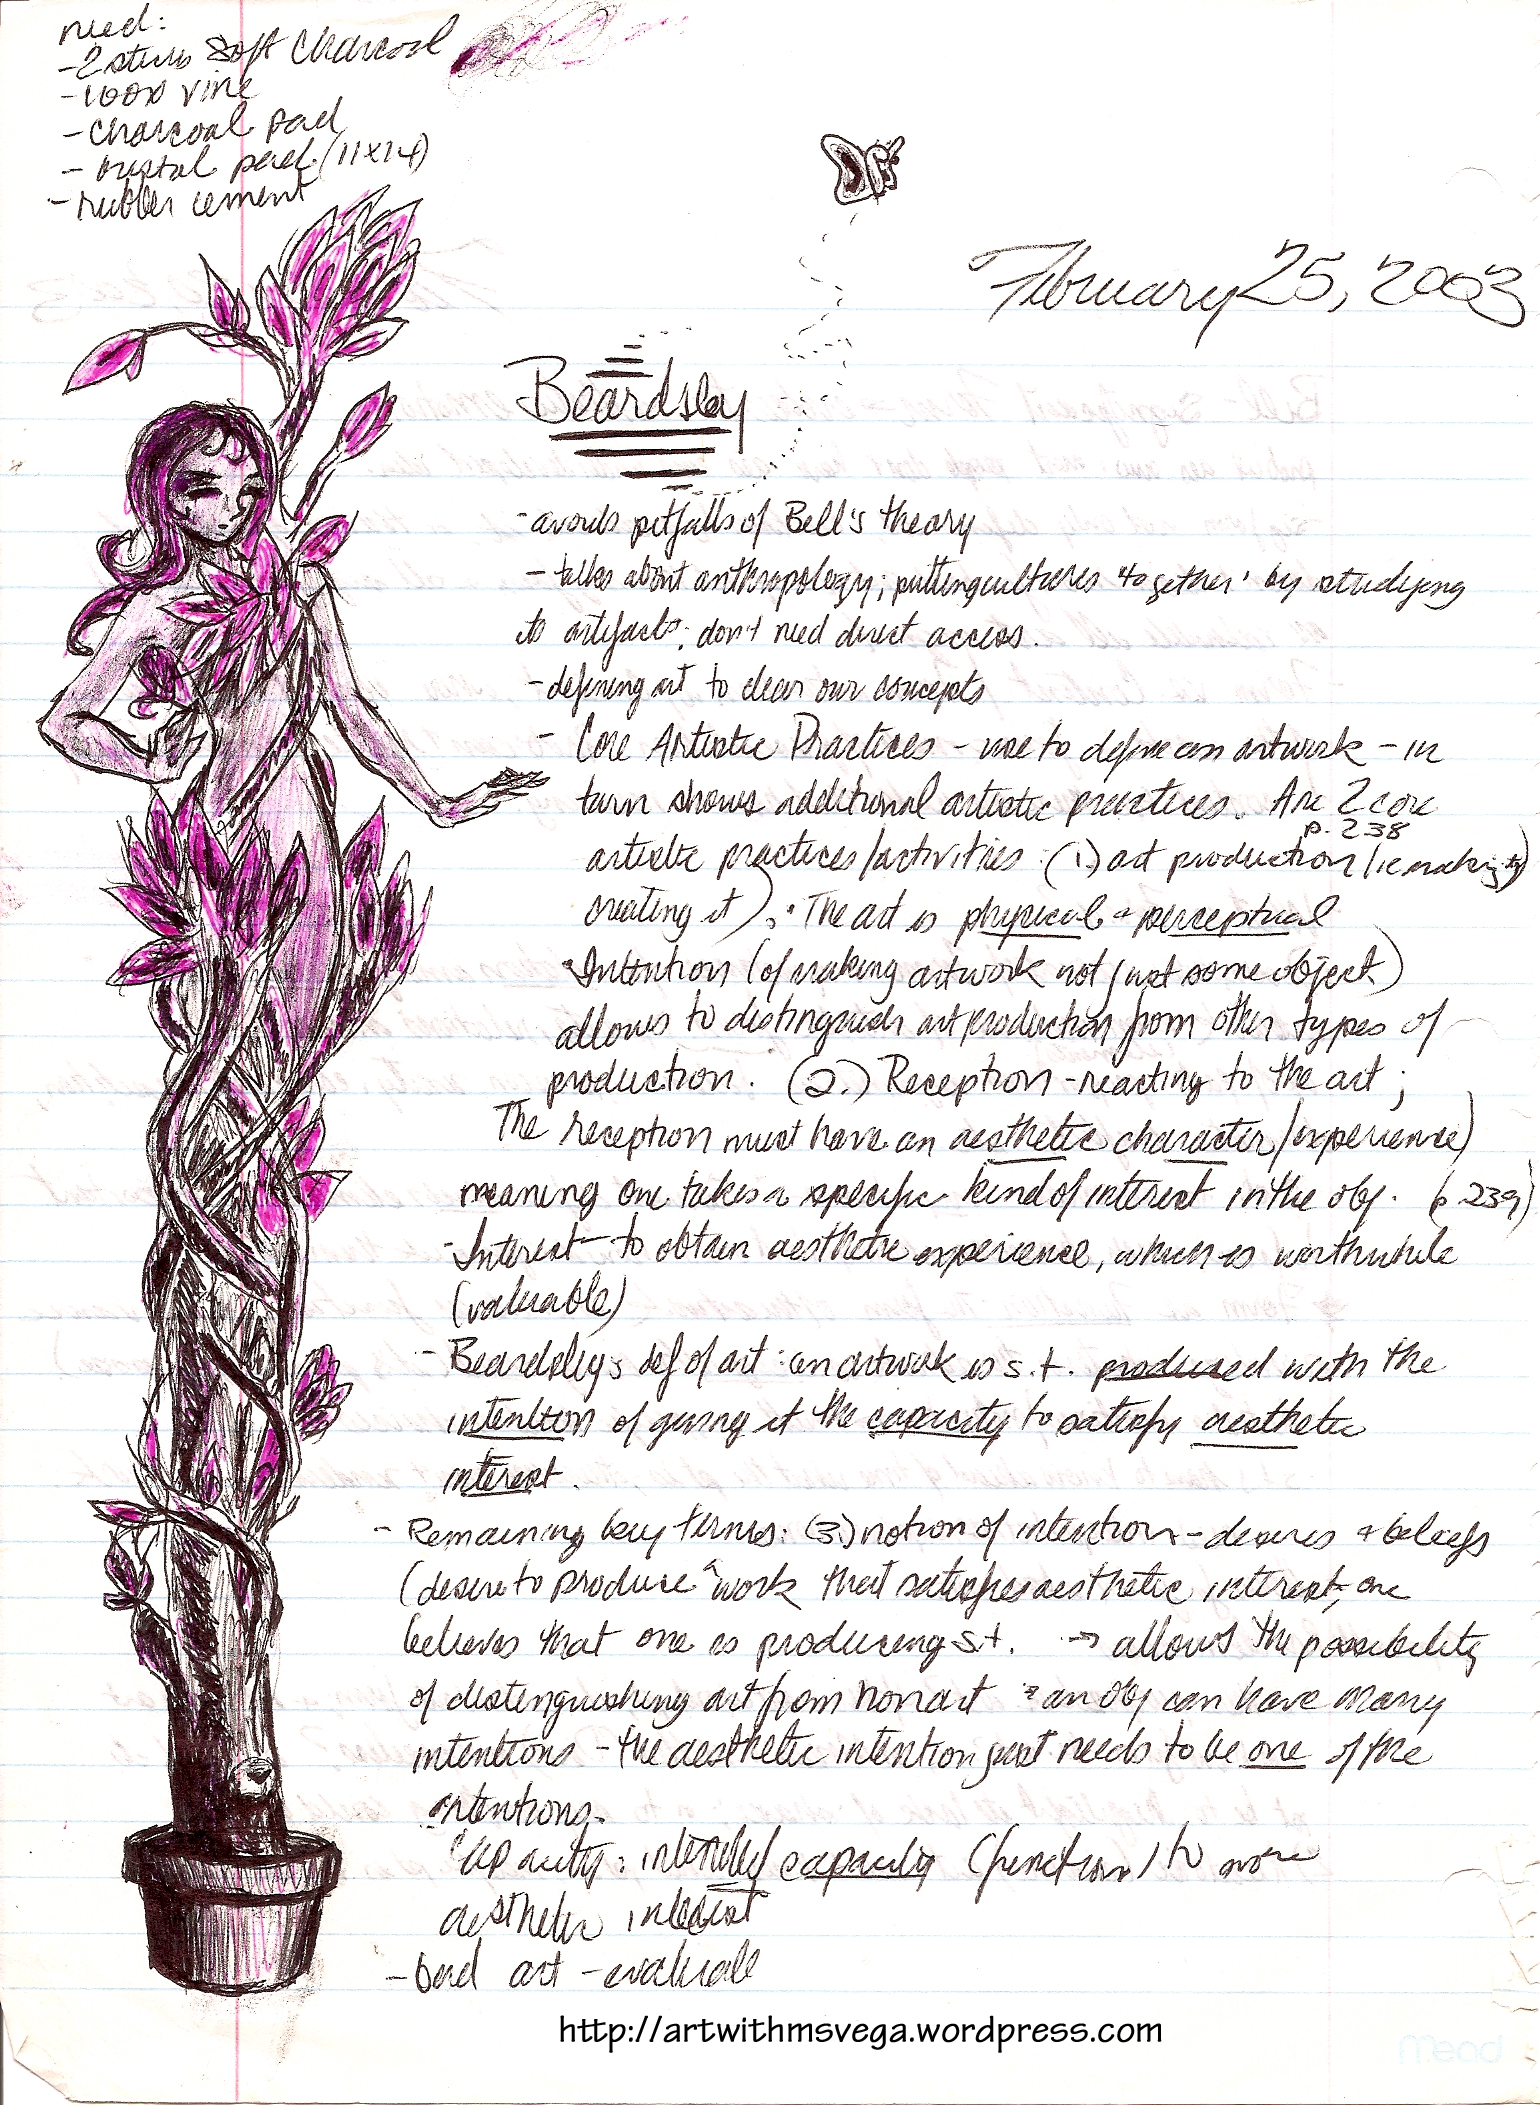 need:
- 2 sticks soft charcoal
- vine
- charcoal pad
- pad (11x14)
- rubber cement
February 25, 2003
Beardsley
- avoids pitfalls of Bell's theory
- talks about anthropology; putting cultures "together" by studying
its artifacts; don't need direct access.
- defining art to clear our concepts
- Core Artistic Practices - use to define an artwork - in
turn shows additional artistic practices. Are 2 core
p. 238
artistic practices/activities: (1.) art production (ie making it,
creating it). • The art is physical + perceptual
• Intention (of making artwork not just some object)
allows to distinguish art production from other types of
production. (2.) Reception - reacting to the art;
The reception must have an aesthetic character (experience)
meaning one takes a specific kind of interest in the obj. (p. 239)
- Interest - to obtain aesthetic experience, which is worthwhile
(valuable)
- Beardsley's def of art: an artwork is s.t. produced with the
intention of giving it the capacity to satisfy aesthetic
interest.
- Remaining key terms: (3.) notion of intention - desires + beliefs
(desire to produce a work that satisfies aesthetic interest, one
believes that one is producing s.t. → allows the possibility
of distinguishing art from nonart • an obj can have many
intentions - the aesthetic intention just needs to be one of the
intentions.
capacity: capacity (function) to
aesthetic interest
- bad art - evaluate
http://artwithmsvega.wordpress.com
Mead